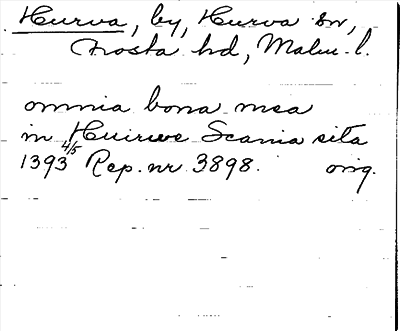 Hurva, by, Hurva sn,
Frosta hd, Malm. l.
omnia bona mea
in Huirwe Scania sita
1393 4/5 Rep. nr 3898. orig.